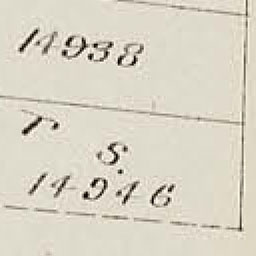 14938
T S.
14946